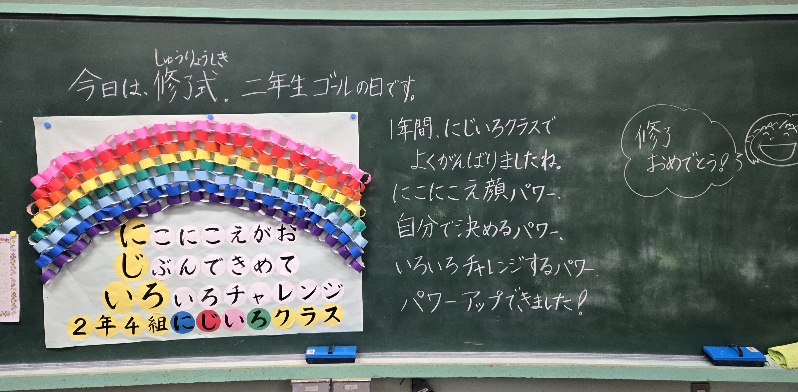 しゅうりょうしき
今日は、修了式。二年生ゴールの日です。
1年間、にじいろクラスで
よくがんばりましたね。
にこにこえ顔パワー、
自分で決めるパワー、
いろいろチャレンジするパワー、
パワーアップできました!
修了
おめでとう!
にこにこえがお
じぶんできめて
いろいろチャレンジ
2年4組にじいろクラス